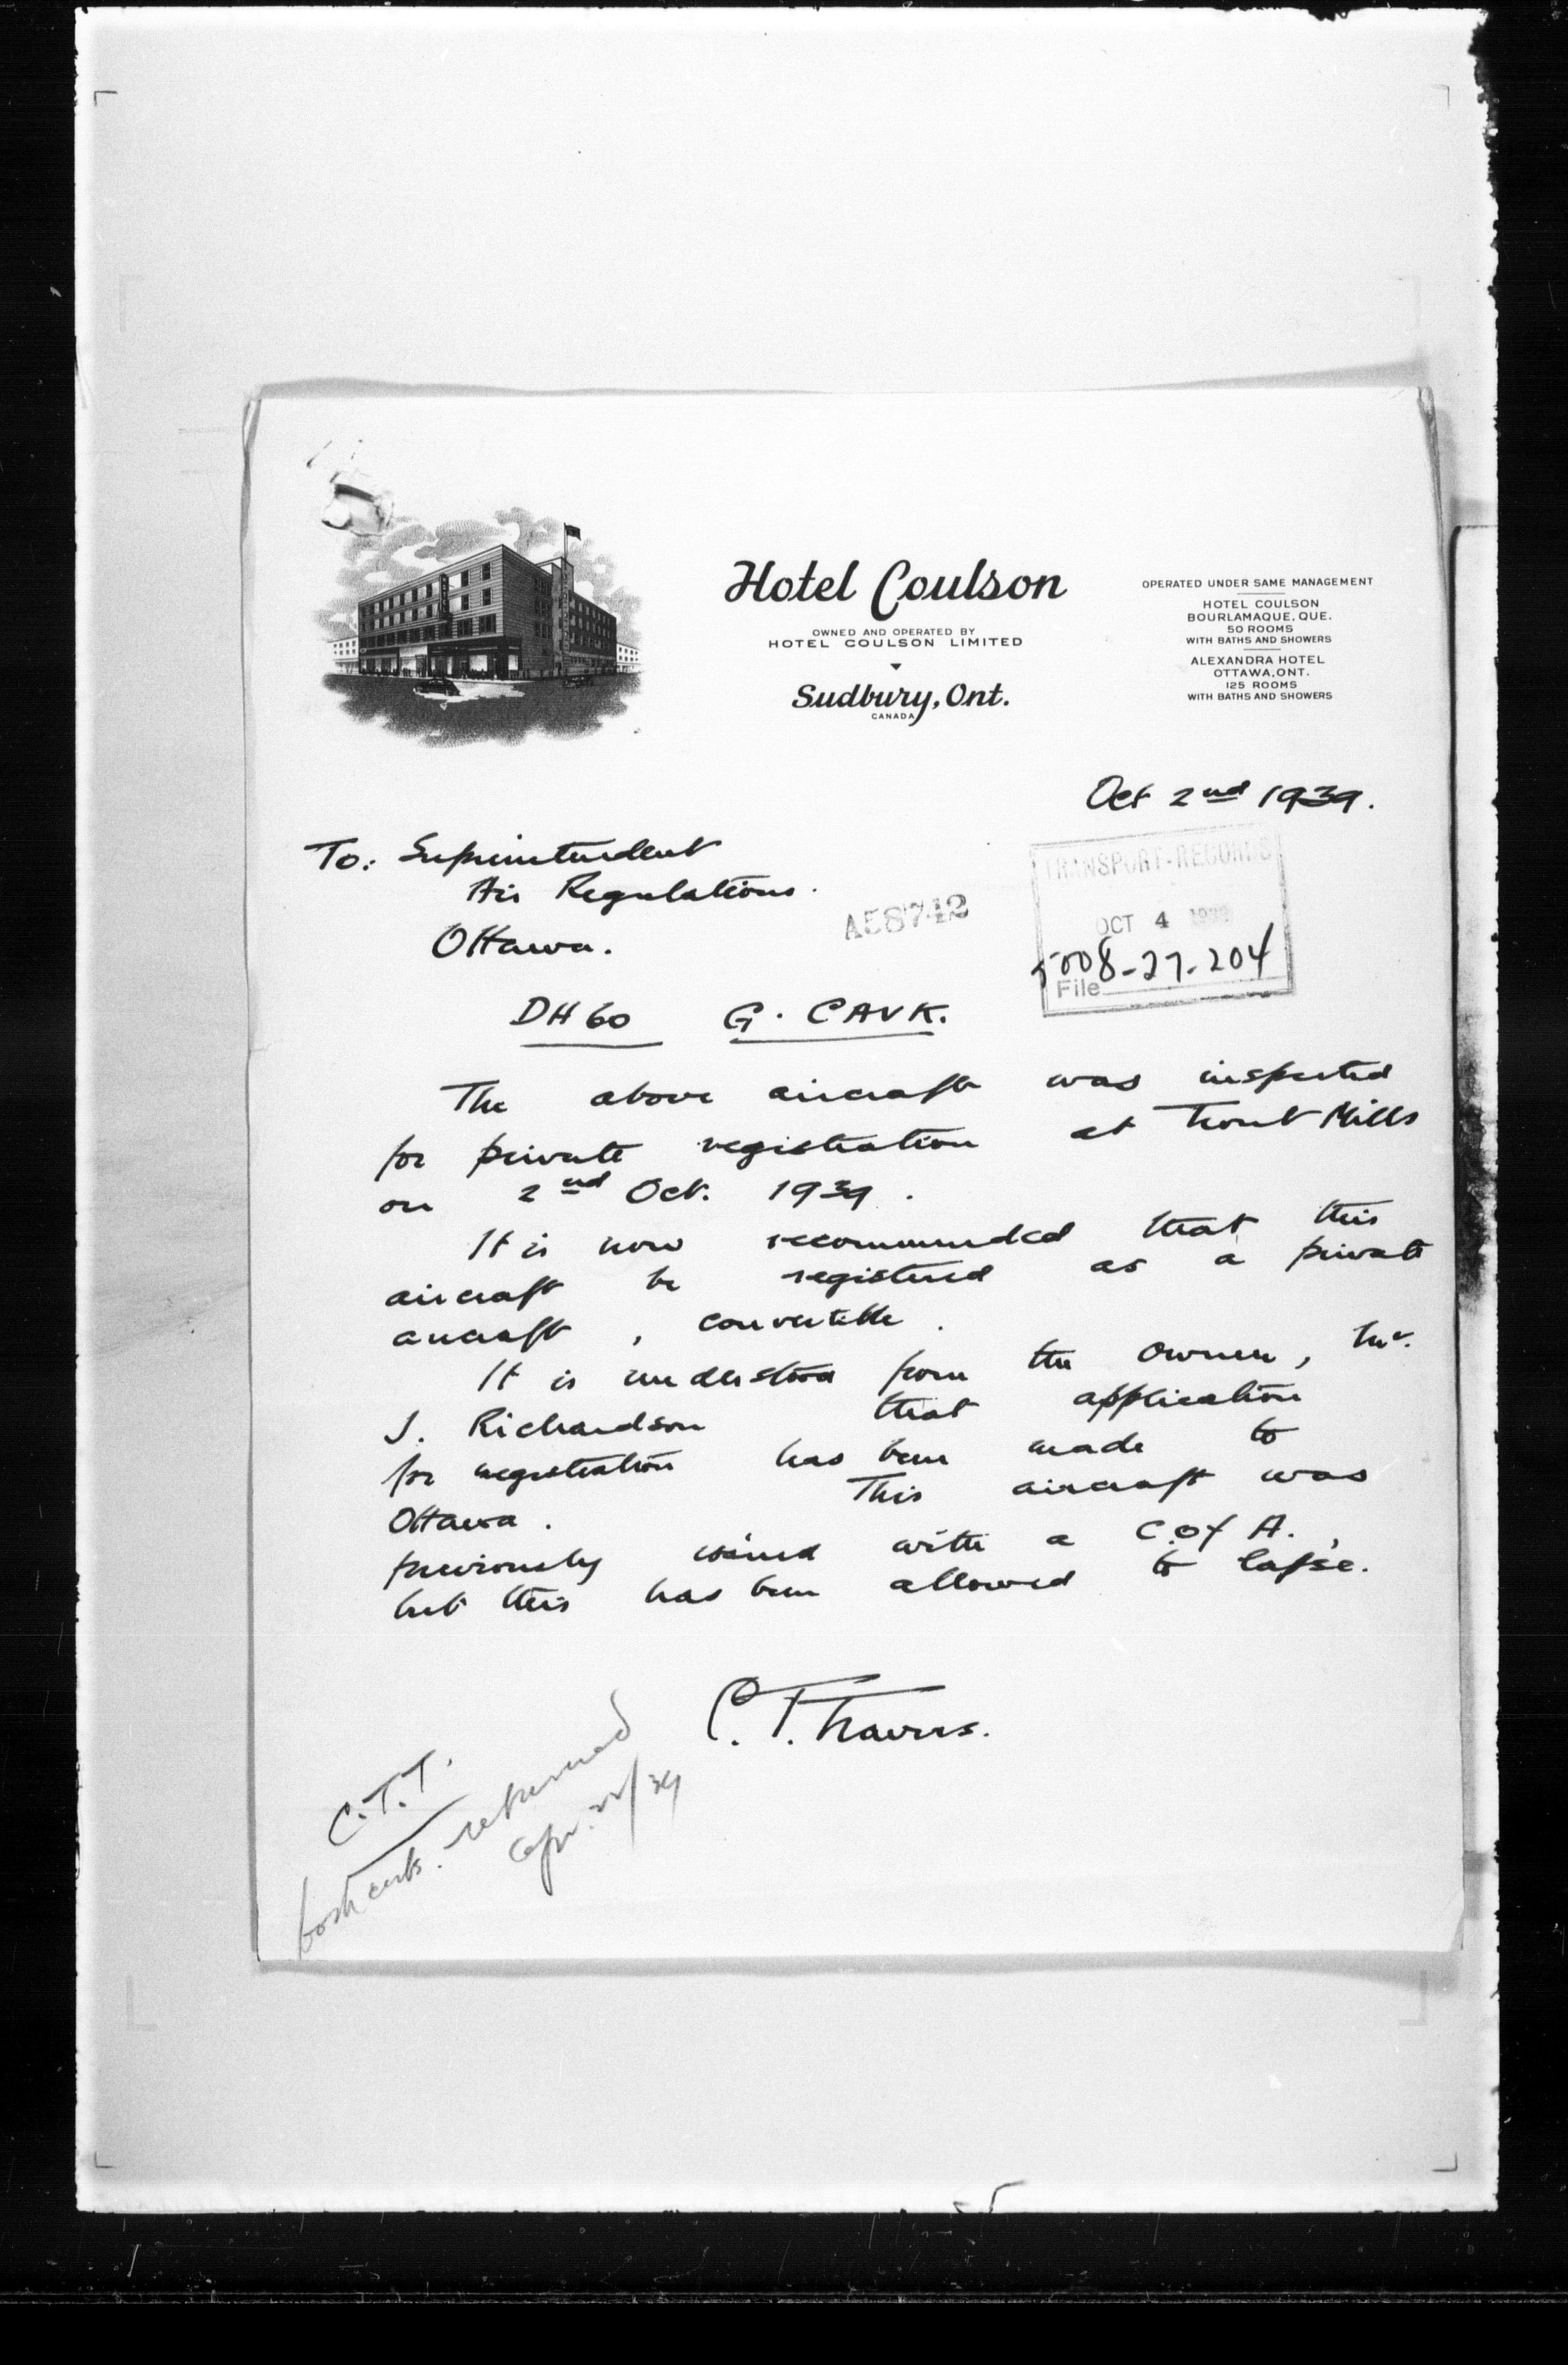 Hotel Coulson
OWNED AND OPERATED BY
HOTEL COULSON LIMITED
Sudbury, Ont.
CANADA
OPERATED UNDER SAME MANAGEMENT
HOTEL COULSON
BOURLAMAQUE, QUE.
50 ROOMS
WITH BATHS AND SHOWERS
ALEXANDRA HOTEL
OTTAWA, ONT.
125 ROOMS
WITH BATHS AND SHOWERS
Oct 2nd 1939.
To: Suprintendent
Air Regulations.
Ottawa.
AE8742
TRANSPORT-RECORDS
OCT 4 1939
5008-27-204
File
DH 60 G. CAVK.
The above aircraft was inspected
for private registration at Trout Mills
on 2nd Oct. 1939.
It is now recommended that this
aircraft be registered as a private
aircraft, convertible.
It is understood from the owner, Mr.
J. Richardson that application
for registration has been made to
Ottawa. This aircraft was
previously issued with a C. of A.,
but this has been allowed to lapse.
C. T. Travers.
C.T.T.
both certs. returned
Apr. 22/39